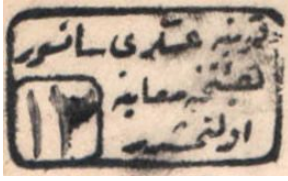 قونیه عسکری سانسور
هیئتنجه معاینه
اولنمشدر
١٣